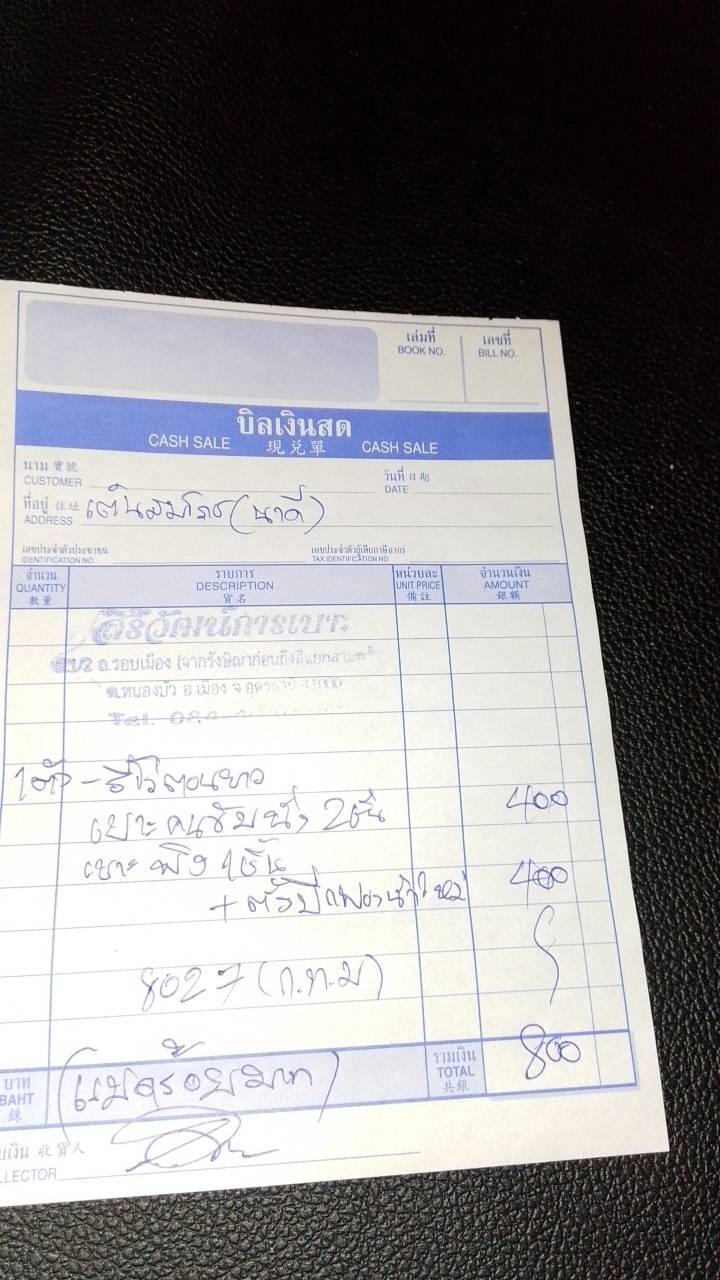 เล่มที่ เลขที่
BOOK NO. BILL NO.
บิลเงินสด
CASH SALE 現兑單 CASH SALE
นาม 寶號 วันที่ 日期
CUSTOMER DATE
ที่อยู่ 住址 (นาดี)
ADDRESS
เลขประจำตัวประชาชน เลขประจำตัวผู้เสียภาษีอากร
IDENTIFICATION NO. TAX IDENTIFICATION NO
จำนวน รายการ หน่วยละ จำนวนเงิน
QUANTITY DESCRIPTION UNIT PRICE AMOUNT
數量 貨名 備註 銀額
ศิริวัฒน์การเบาะ
ถ.รอบเมือง
ต.หนองบัว อ.เมือง จ.อุดรธานี 41000
Tel.
1ตัว - รีโว่ตอนยาว
เบาะคนขับนั่ง 2ชิ้น 400
เบาะพิง 1ชิ้น
+ 400
8027 (ก.ท.ม)
บาท (แปดร้อยบาท) รวมเงิน 800
BAHT TOTAL
銖 共銀
收貨人
LLECTOR